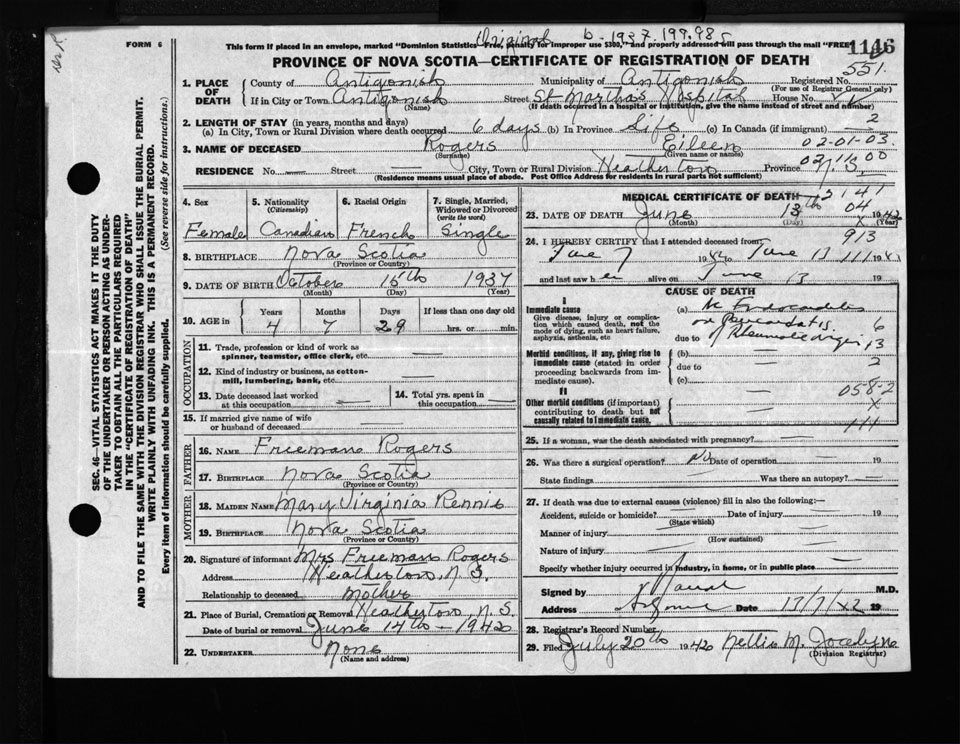 Original b-1937.199.985
FORM 6
This form if placed in an envelope, marked "Dominion Statistics Free, penalty for improper use $300," and properly addressed will pass through the mail "FREE"
1146
PROVINCE OF NOVA SCOTIA—CERTIFICATE OF REGISTRATION OF DEATH
551.
1. PLACE OF DEATH
County of Antigonish Municipality of Antigonish Registered No.
(For use of Registrar General only)
If in City or Town Antigonish Street St Martha's Hospital House No.
(Name) (If death occurred in a hospital or institution, give the name instead of street and number)
2. LENGTH OF STAY (in years, months and days)
(a) In City, Town or Rural Division where death occurred 6 days (b) In Province Life (c) In Canada (if immigrant) — 2
3. NAME OF DECEASED Rogers Eileen 02-01-03.
(Surname) (Given name or names)
02 11 00
RESIDENCE No. — Street — City, Town or Rural Division Heatherton Province N. S.
(Residence means usual place of abode. Post Office Address for residents in rural parts not sufficient)
SEC. 46—VITAL STATISTICS ACT MAKES IT THE DUTY
OF THE UNDERTAKER OR PERSON ACTING AS UNDER-
TAKER TO OBTAIN ALL THE PARTICULARS REQUIRED
IN THE "CERTIFICATE OF REGISTRATION OF DEATH"
AND TO FILE THE SAME WITH THE DIVISION REGISTRAR WHO SHALL ISSUE THE BURIAL PERMIT.
WRITE PLAINLY WITH UNFADING INK. THIS IS A PERMANENT RECORD.
Every item of information should be carefully supplied. (See reverse side for instructions.)
4. Sex 5. Nationality (Citizenship) 6. Racial Origin 7. Single, Married, Widowed or Divorced (write the word)
Female Canadian French Single
8. BIRTHPLACE Nova Scotia
(Province or Country)
9. DATE OF BIRTH October 15th 1937
(Month) (Day) (Year)
10. AGE in Years Months Days If less than one day old
4 7 29 hrs. or min.
OCCUPATION
11. Trade, profession or kind of work as spinner, teamster, office clerk, etc. —
12. Kind of industry or business, as cotton-mill, lumbering, bank, etc. —
13. Date deceased last worked at this occupation — 14. Total yrs. spent in this occupation —
15. If married give name of wife or husband of deceased —
FATHER
16. NAME Freeman Rogers
17. BIRTHPLACE Nova Scotia
(Province or Country)
MOTHER
18. MAIDEN NAME Mary Virginia Rennie
19. BIRTHPLACE Nova Scotia
(Province or Country)
20. Signature of informant Mrs Freeman Rogers
Address Heatherton, N. S.
Relationship to deceased mother
21. Place of Burial, Cremation or Removal Heatherton N. S.
Date of burial or removal June 14th - 1942
22. UNDERTAKER None
(Name and address)
MEDICAL CERTIFICATE OF DEATH
2141
23. DATE OF DEATH June 13th 04 1942
(Month) (Day) (Year)
913
24. I HEREBY CERTIFY that I attended deceased from:
June 7 1942 to June 13 111 194
and last saw her alive on June 13 19
CAUSE OF DEATH
I
Immediate cause
Give disease, injury or complication which caused death, not the mode of dying, such as heart failure, asphyxia, asthenia, etc
(a)
or Pericarditis 6
due to 13
Morbid conditions, if any, giving rise to immediate cause (stated in order proceeding backwards from immediate cause).
(b) — 2
due to —
(c) —
II
058-2
Other morbid conditions (if important) contributing to death but not causally related to immediate cause.
X
111
25. If a woman, was the death associated with pregnancy? —
26. Was there a surgical operation? no Date of operation — 19
State findings — Was there an autopsy? —
27. If death was due to external causes (violence) fill in also the following:—
Accident, suicide or homicide? — Date of injury — 19
(State which)
Manner of injury —
(How sustained)
Nature of injury —
Specify whether injury occurred in industry, in home, or in public place —
Signed by M.D.
Address Date 13/7/42 19
28. Registrar's Record Number
29. Filed July 20th 1942 Nellie M. Jocelyne
(Division Registrar)